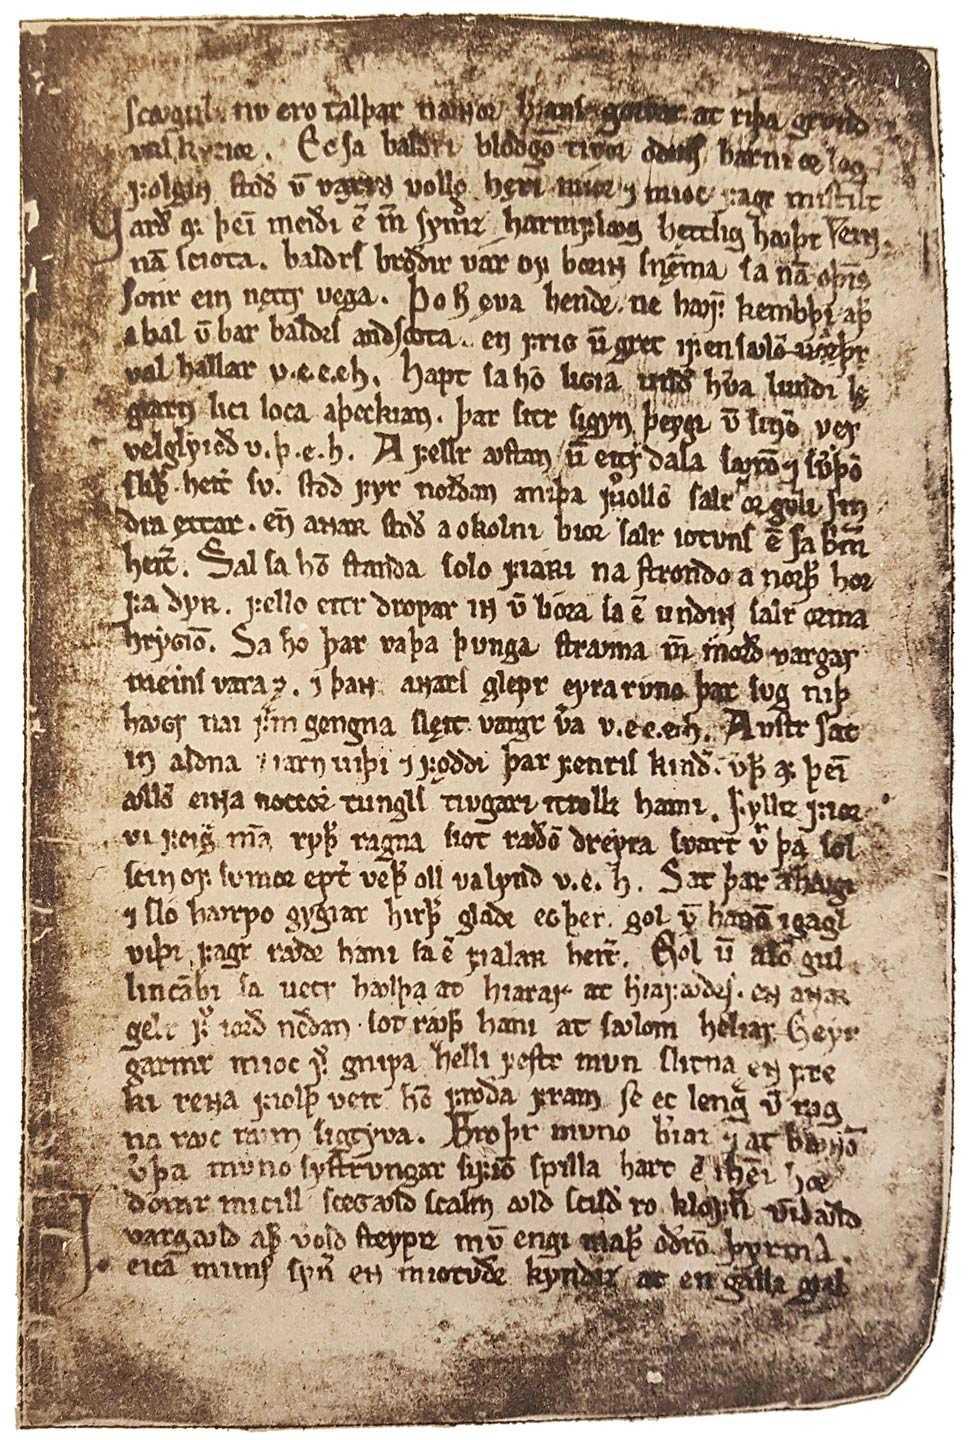 scꜹgul. nv ero talþar naɴor herians gorvar at riþa grund
valkyrior. Ec sa baldri blodgō tivor odins barni ør log
folgin stod v̄ vaxīɴ vollō heri mior ⁊ mioc fagr mistilt
Jarð af þeī meiði ē m̄ syndiz harmflꜹg hettlig hꜹþr
nā sciota. baldrs broðir var of boriɴ snēma sa nā oþīs
sonr ein nęttr vega. Þo h̄ ęva hendr ne hꜹfuþ kembþi aþ
a bal v̄ bar baldrs andscota. en frig v̄ gret ifen sꜹlō
val hallar v.e.e.eh. Hapt sa hō ligia undir hvera lundi
giarn lici loca aþeckian. þar sitr sigyn þeygi v̄ sinō ver
velglyiuð v.þ.e.h. A fellr ꜹstan v̄ eitrdala sꜹxō ⁊ sv̓þō
sliþ heitir sv. stod fyr norðan aniþa fiollō salr ór gulli sin
dra ęttar. en̄ aɴar stoð a okolni bior salr iotuns ē sa brim̄
heitir. Sal sa hō standa solo fiarri na strondo a norþ hor
fa dyʀ. fello eitr dropar iɴ v̄ lióra sa ē undiɴ salr orma
hryGiō. Sa hō þar vaþa þunga strꜹma m̄ mords vargar
meins vara ⁊. ⁊ þaɴ aɴars glepr eyra runo þar sug niþ
hꜹGr nai frāgengna sleit vargr v̓a v.e.e.eh. Austr sat
in aldna iarn uiþi ⁊ foddi þar fenris kindir. v̓þ af þeī
ꜹllō eiɴa noccoʀ tungls tiugari itrollz hami. Fylliz fior
vi feigra māna ryþr ragna siot rꜹðō dreyra svart v̓ þa sol
scin of sumor eptir veþr oll valynd v.e.h. Sat þar ahꜹgi
⁊ slo hꜹrpo gygiar hirþir glaðr ecþer. gol v̄ hanō igagl
viþi fagr rꜹðr hani sa ē fialaʀ heitir. Gol v̄ asō gul
lincābi sa uecr hꜹlþa at hiarar at heriafꜹðrs. en aɴaʀ
gelr f̓ iorð neðan sot rꜹþr hani at sꜹlom heliar. Geyr
garmr mioc f̓ gnipa helli festr mun slitna eɴ fre
ki reɴa fiolþ veit hō froða fram se ec lengra v̄ rag
na rꜹc rꜹm sigtyva. Broþr muno beriaz ⁊ at bꜹnō
v̓þa muno systrungar sifiō spilla hart ē iheimi hor
dómr micill sceGꜹld scalm ꜹld scildir ro klofnir vindꜹld
vargꜹld aþr v̓old steypiz mun engi maþr oðrō þyrma.
Leica mims synir en miotuðr kyndiz at en galla gial